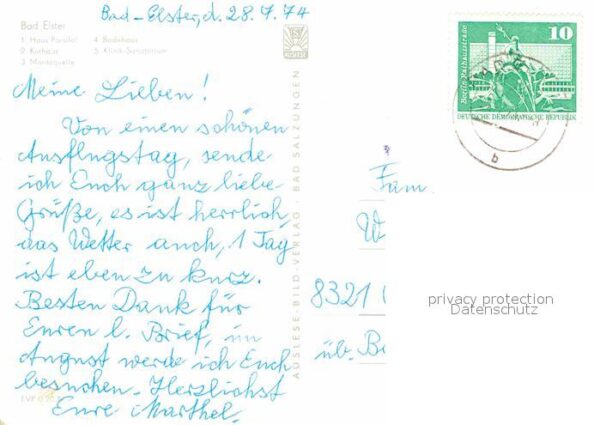 Bad-Elster, d. 28.7.74
Bad Elster
1 Haus Parsifal 4 Badehaus
2 Kurhaus 5 Klinik-Sanatorium
3 Marienquelle
Meine Lieben!
Von einen schönen
Ausflugstag, sende
ich Euch ganz liebe
Grüße, es ist herrlich,
das Wetter auch, 1 Tag
ist eben zu kurz.
Besten Dank für
Euren l. Brief, im
August werde ich Euch
besuchen. Herzlichst
Eure Marthel.
AUSLESE-BILD-VERLAG · BAD SALZUNGEN
10
Berlin, Rathausstraße
DEUTSCHE DEMOKRATISCHE REPUBLIK
b
Fam.
W
8321
üb. B
privacy protection
Datenschutz